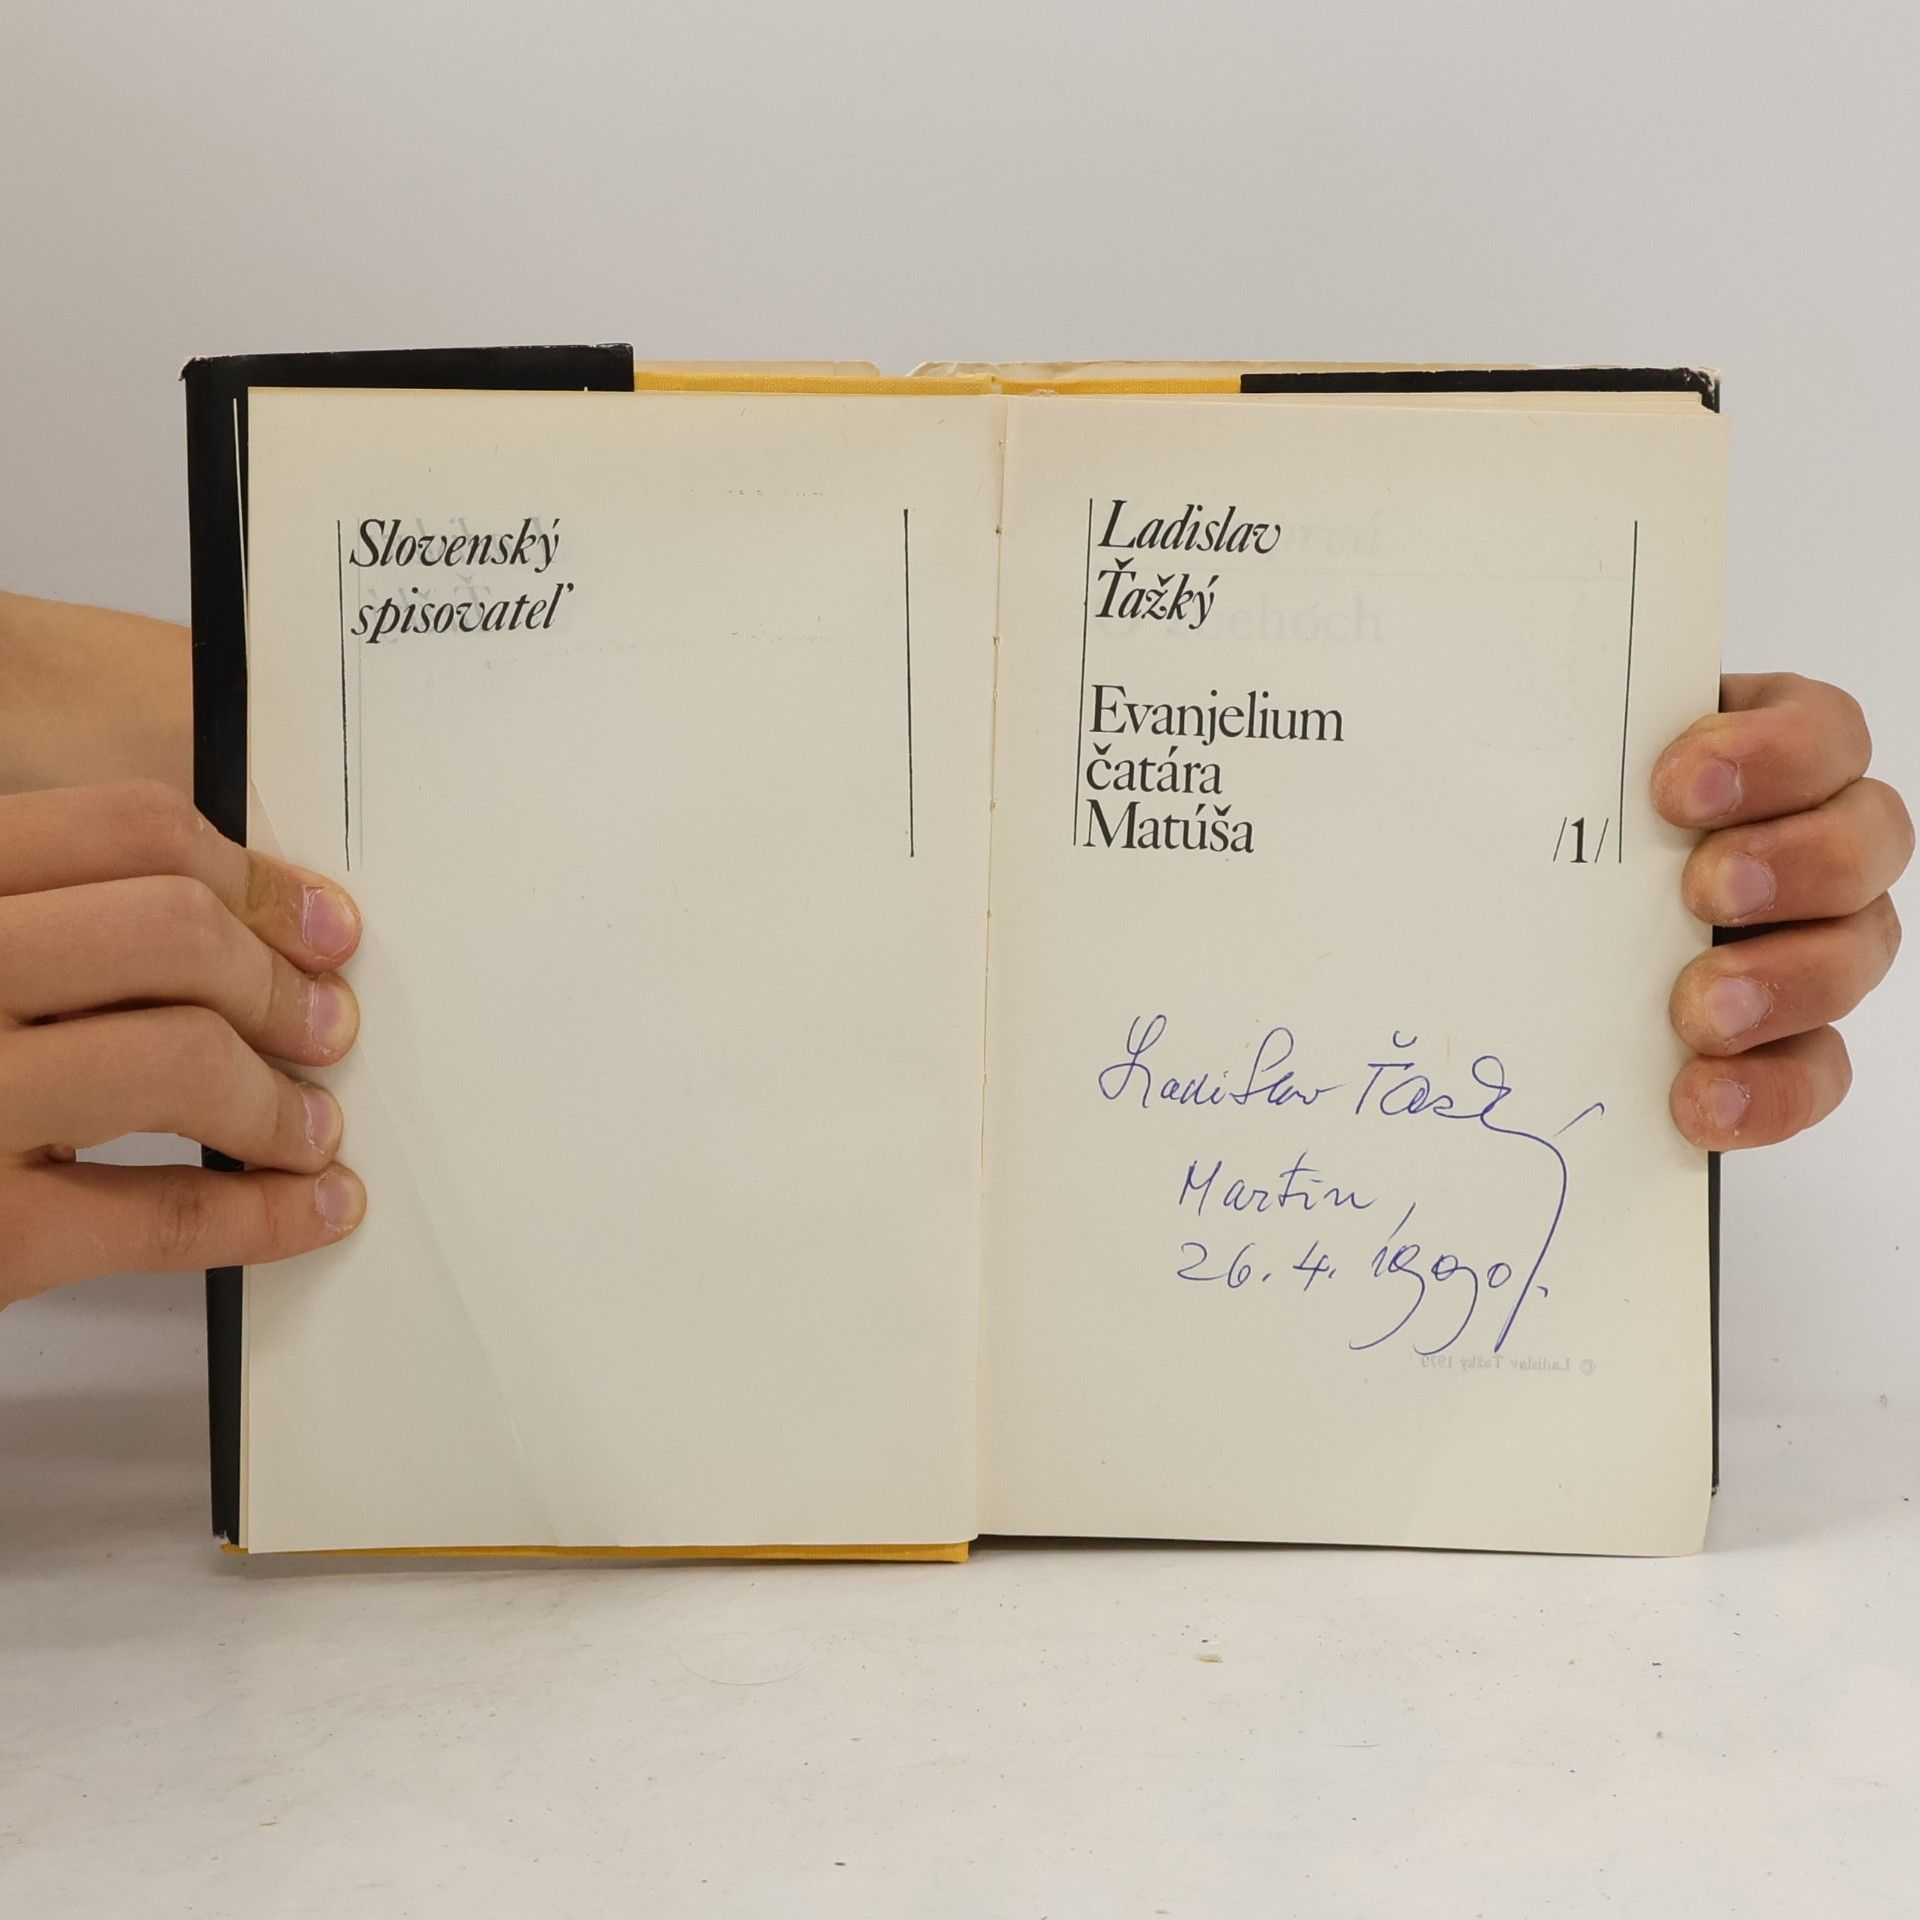 Slovenský
spisovateľ
Ladislav
Ťažký
Evanjelium
čatára
Matúša
/1/
Ladislav Ťažký
Martin,
26. 4. 1990.
© Ladislav Ťažký 1979